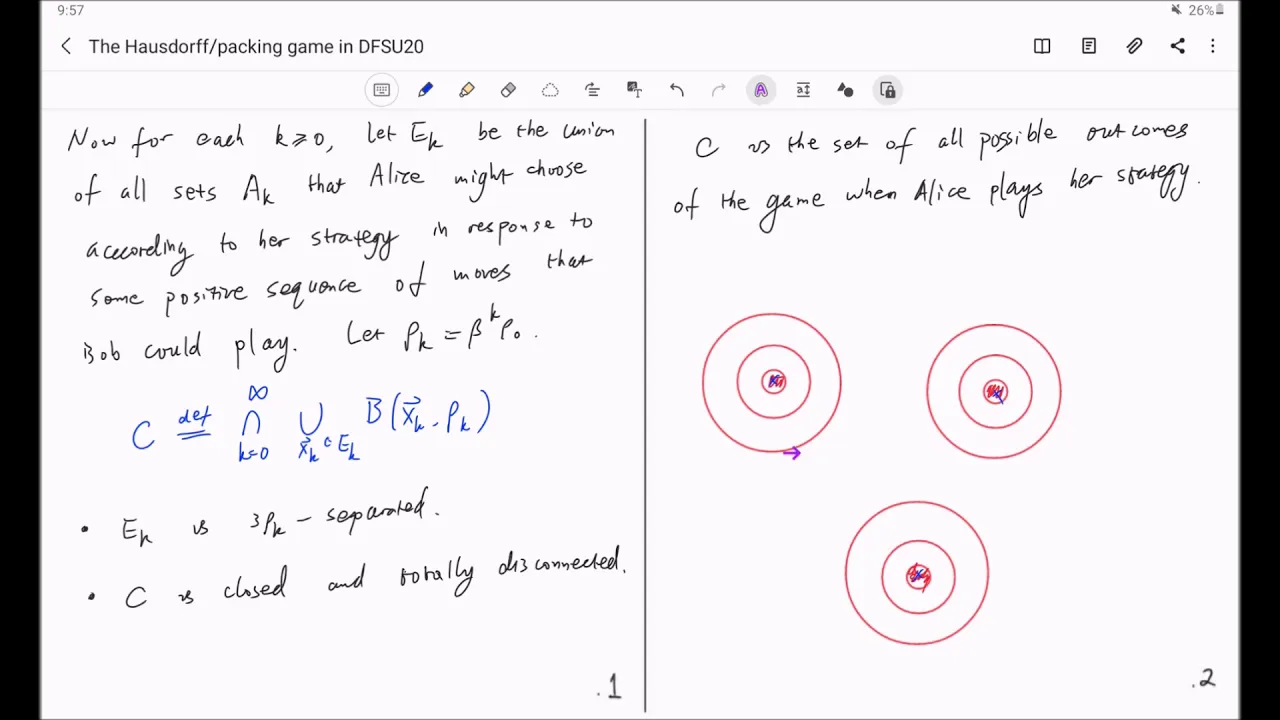 9:57
26%
The Hausdorff/packing game in DFSU20
Now for each k ⩾ 0, let E_k be the union
of all sets A_k that Alice might choose
according to her strategy in response to
some positive sequence of moves that
Bob could play. Let ρ_k = β^k ρ_0.
C def= ∩_{k=0}^∞ ∪_{x⃗_k ∈ E_k} B(x⃗_k, ρ_k)
• E_k is 3ρ_k - separated.
• C is closed and totally disconnected.
.1
C is the set of all possible outcomes
of the game when Alice plays her strategy.
.2